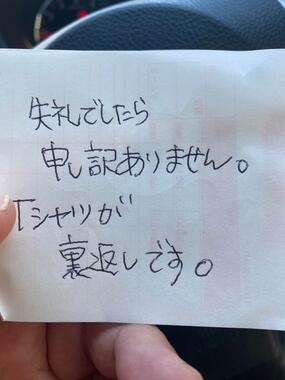 失礼でしたら
申し記ありません。
Tシャツが
裏返しです。